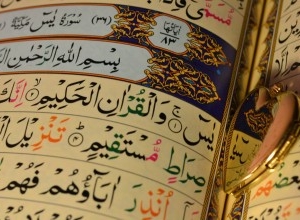 مُّسَمًّى
سُوْرَةُ يٰسٓ مَكِّيَّةٌ (٣٦) اٰيَاتُهَا ٨٣
بِسْمِ اللّٰهِ الرَّحْمٰنِ
يٰسٓ ۝١ وَالْقُرْاٰنِ الْحَكِيْمِ ۝٢ اِنَّكَ
صِرَاطٍ مُّسْتَقِيْمٍ ۝٤ تَنْزِيْلَ
اُنْذِرَ اٰبَآؤُهُمْ فَهُمْ